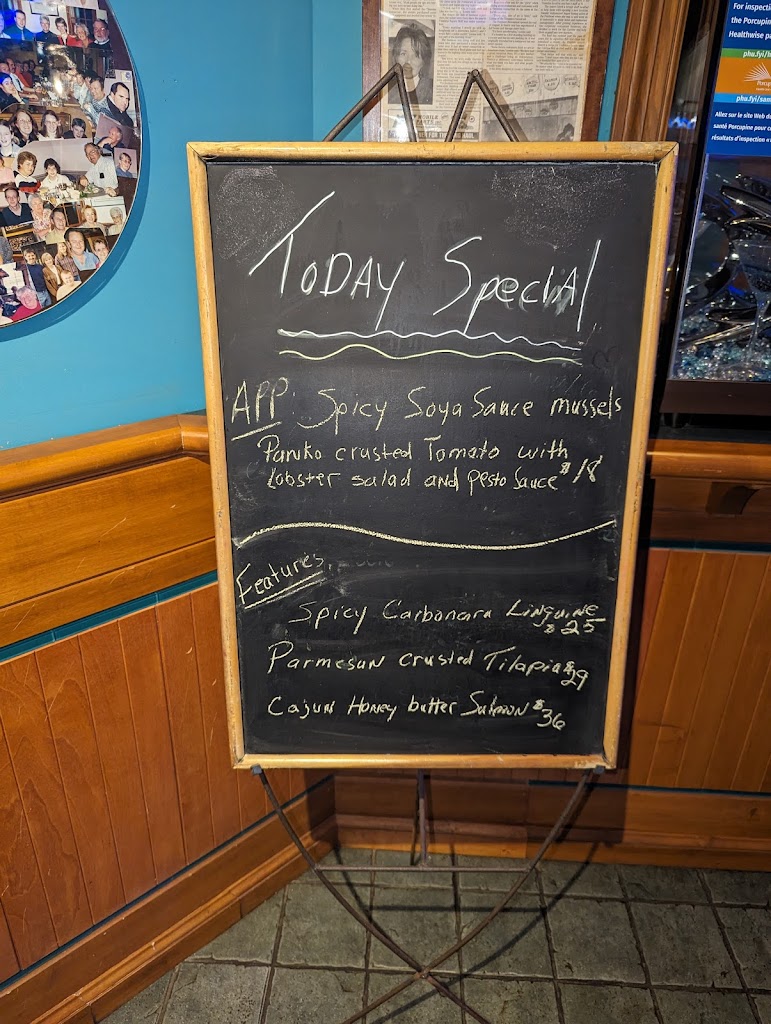 For inspecti
the Porcupine
Healthwise pa
phu.fyi/h
Porcup
phu.fyi/san
Allez sur le site Web de
santé Porcupine pour c
résultats d'inspection «
TODAY SpeciAl
APP Spicy Soya Sauce mussels
Panko crusted Tomato with
Lobster salad and pesto Sauce $18
Features
Spicy Carbonara Linguine
$25
Parmesan crusted Tilapia $29
Cajun Honey butter Salmon $36